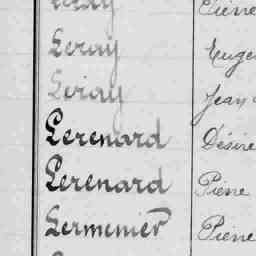 Leray Pierre
Leray Eugè
Leray Jean
Lerenard Désiré
Lerenard Pierre
Lermenier Pierre